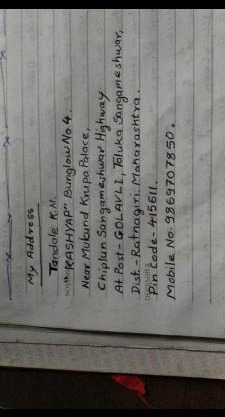 My Address
Tandale K.N.
"KASHYAP" Bunglow No.4.
Near Mukund Krupa Palace,
Chiplun Sangameshwar Highway
At Post - GOLAVLI, Taluka Sangameshwar,
Dist. - Ratnagiri. Maharashtra.
Pin Code - 415611.
Mobile No. 9869707850.